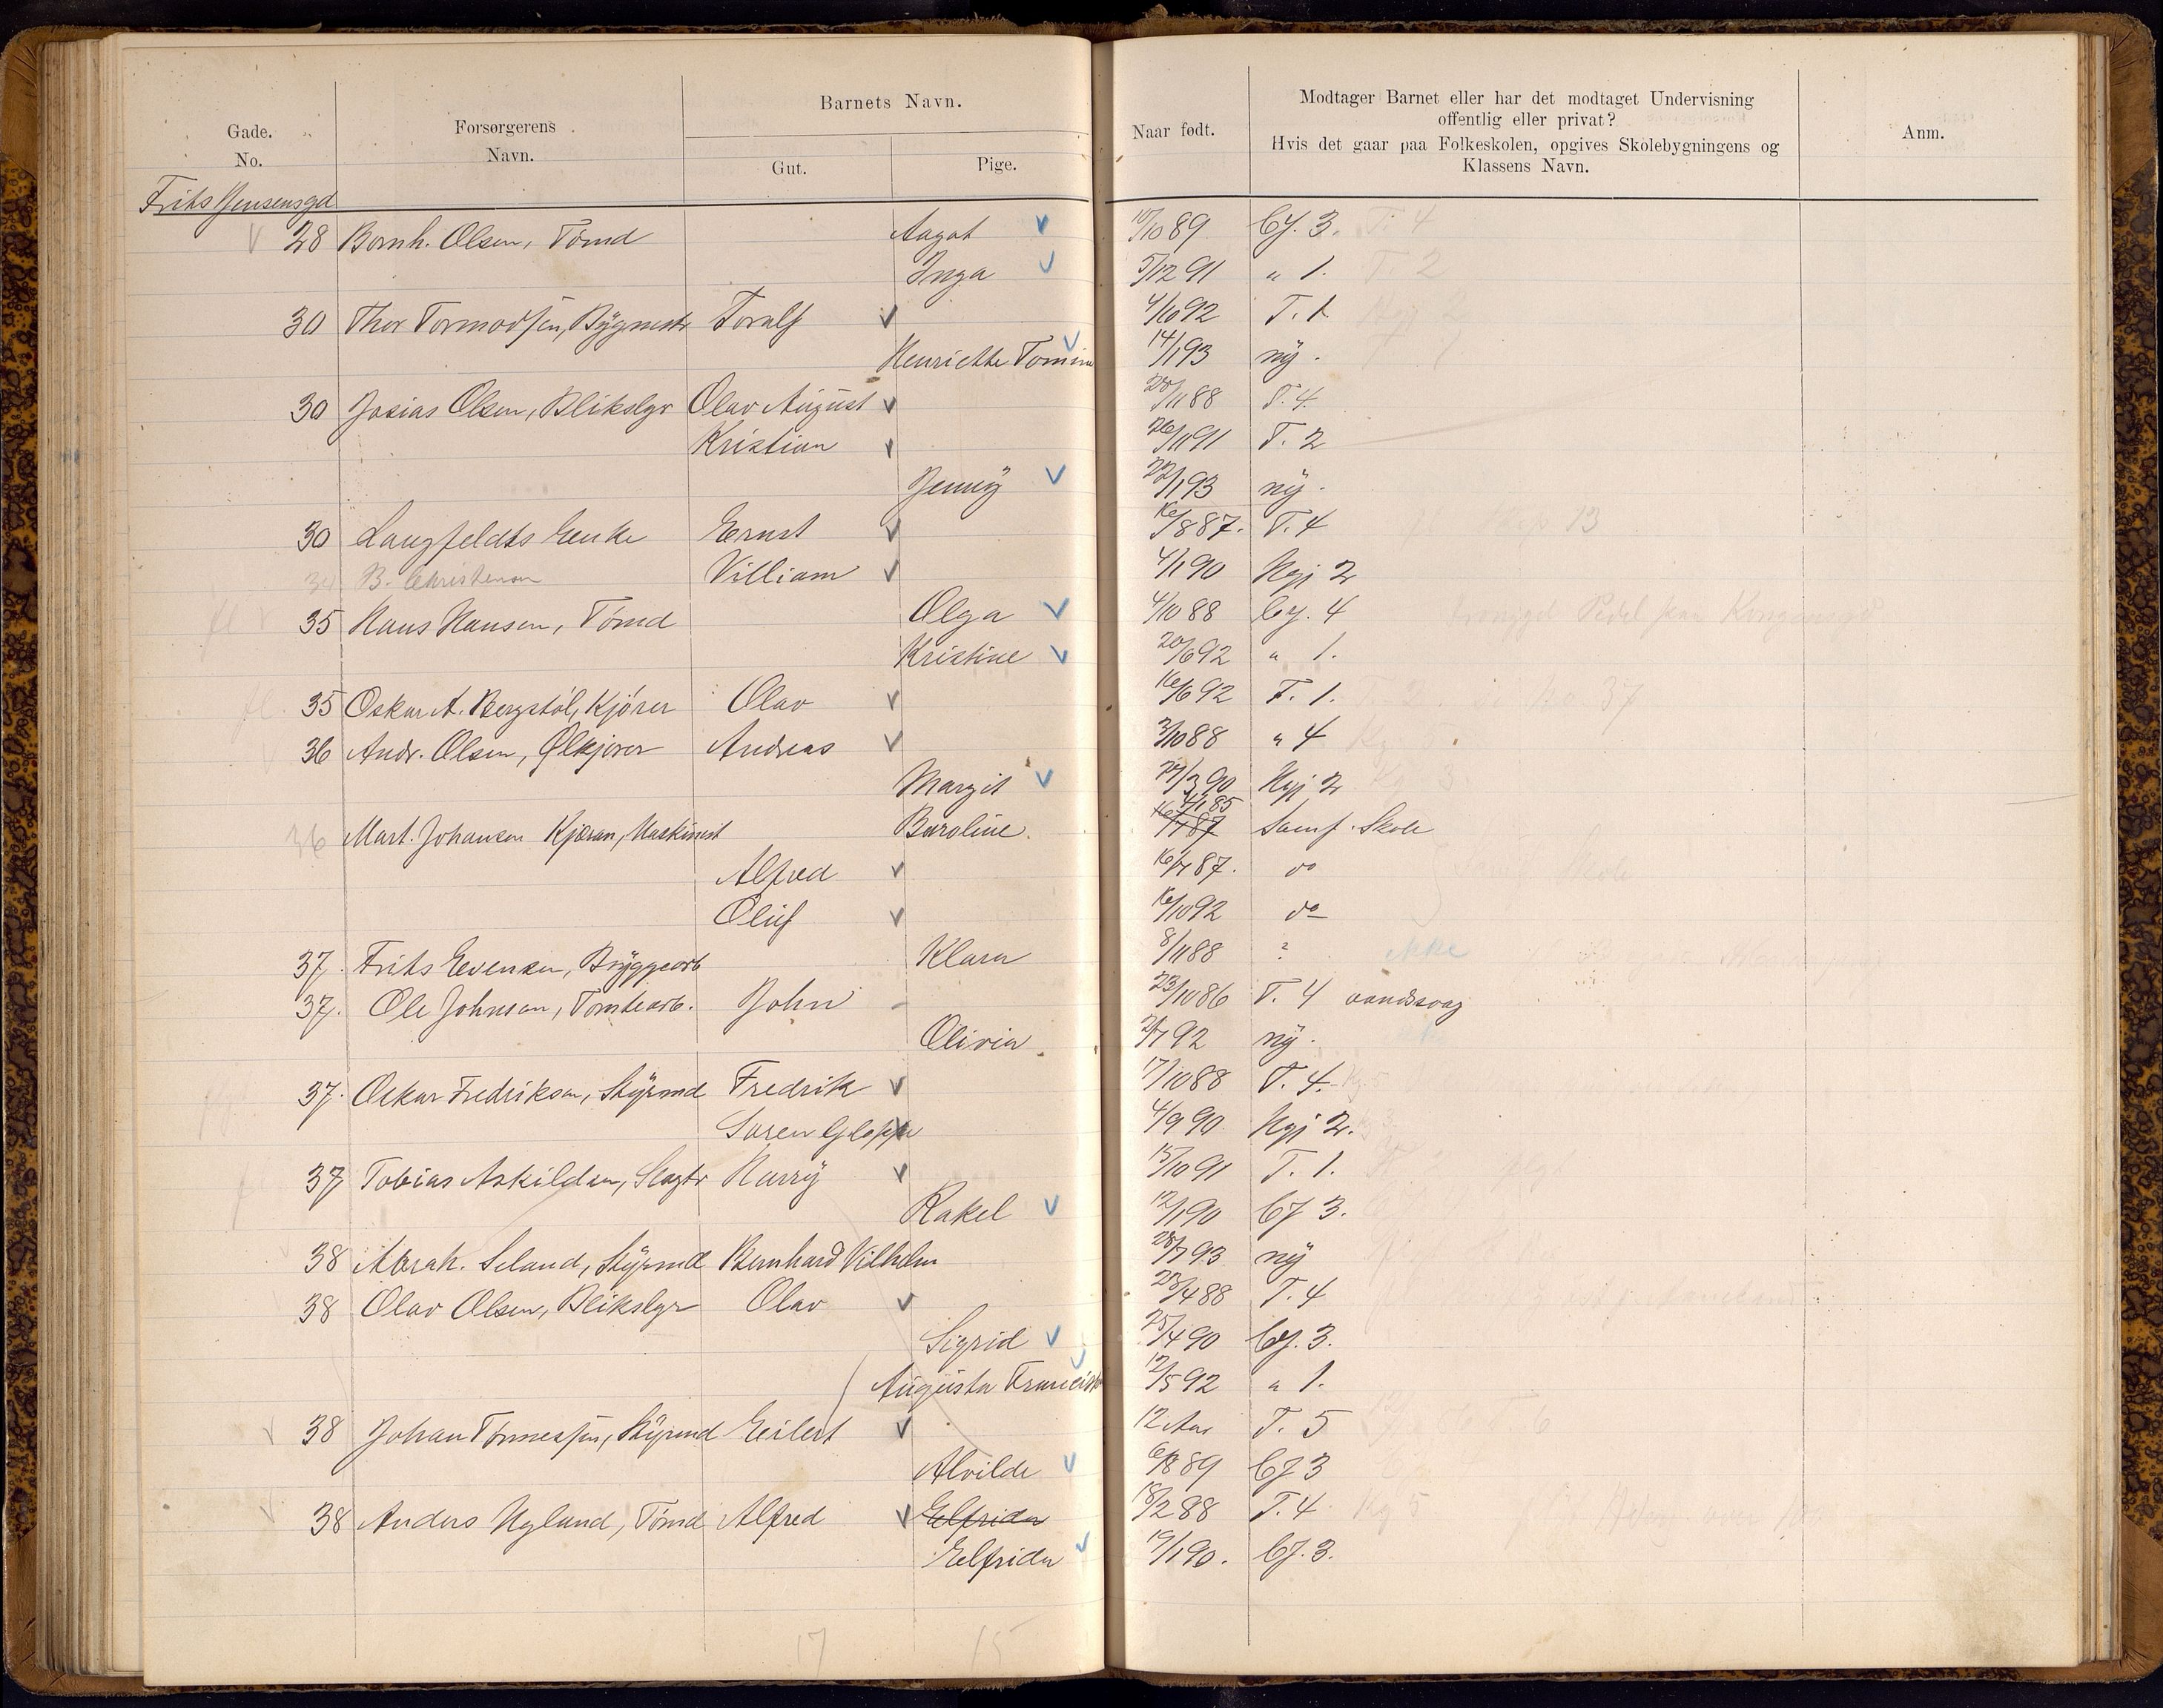 Gade.
No.
Forsørgerens
Navn.
Barnets Navn.
Gut.
Pige.
Naar født.
Modtager Barnet eller har det modtaget Undervisning
offentlig eller privat?
Hvis det gaar paa Folkeskolen, opgives Skolebygningens og
Klassens Navn.
Anm.
Frits Jensensgd
28 Bernh. Olsen, Tømd Aagot 10/10 89 Cf. 3. T. 4
Inga 5/12 91 " 1. T 2
30 Thor Tormodsen, Bygmestr Toralf 4/10 92 T. 1.
Henriette Tomine 14/1 93 ny.
30 Josias Olsen, Blikslgr Olav August 28/11 88 T. 4.
Kristian 26/11 91 T. 2
Jenny 22/1 93 ny.
30 Langfeldts Enke Ernst 16/8 87. T. 4 13
34 B. Christensen Villiam 4/1 90 Kgj 2
35 Hans Hansen, Tømd Olga 4/10 88 Cf. 4
Kristine 20/6 92 " 1.
35 Oskar A. Bergstøl, Kjører Olav 16/6 92 T. 1. T. 2 37
36 Andr. Olsen, Ølkjører Andreas 3/10 88 " 4
Margit 27/3 90 Kgj 2 Kg 3.
36 Mart. Johansen Kjøran, Maskinist Karoline. 4/1 85 Samf. Skole
Alfred 16/7 87. do
Oluf 16/10 92 do
37. Frits Evensen, Bryggearb Klara 8/11 88 ? ikke
37. Ole Johnsen, Tomtearb. John 23/10 86 T. 4 aandssvag
Olivia 2/7 92 ny.
37. Oskar Fredriksen, Styrmd Fredrik 17/10 88 T. 4. Kg. 5
Søren Gloppe 4/9 90 Kgj 2.
37 Tobias Askildsen, Slagtr Harry 15/10 91 T. 1.
Rakel 12/1 90 Cf 3.
38 Abrah. Seland, Styrmd Bernhard Vilhelm 28/7 93 ny
38 Olav Olsen, Blikslgr Olav 28/4 88 T. 4
Sigrid 25/4 90 Cf. 3.
Augusta Franciska 12/5 92 " 1.
38 Johan Tønnessen, Styrmd Eilert 12 Aar T. 5
Alvilde 6/8 89 Cf 3
38 Anders Nyland, Tømd Alfred Elfrida 18/2 88 T. 4 Kg 5
Elfrida 19/1 90. Cf. 3.
17 15